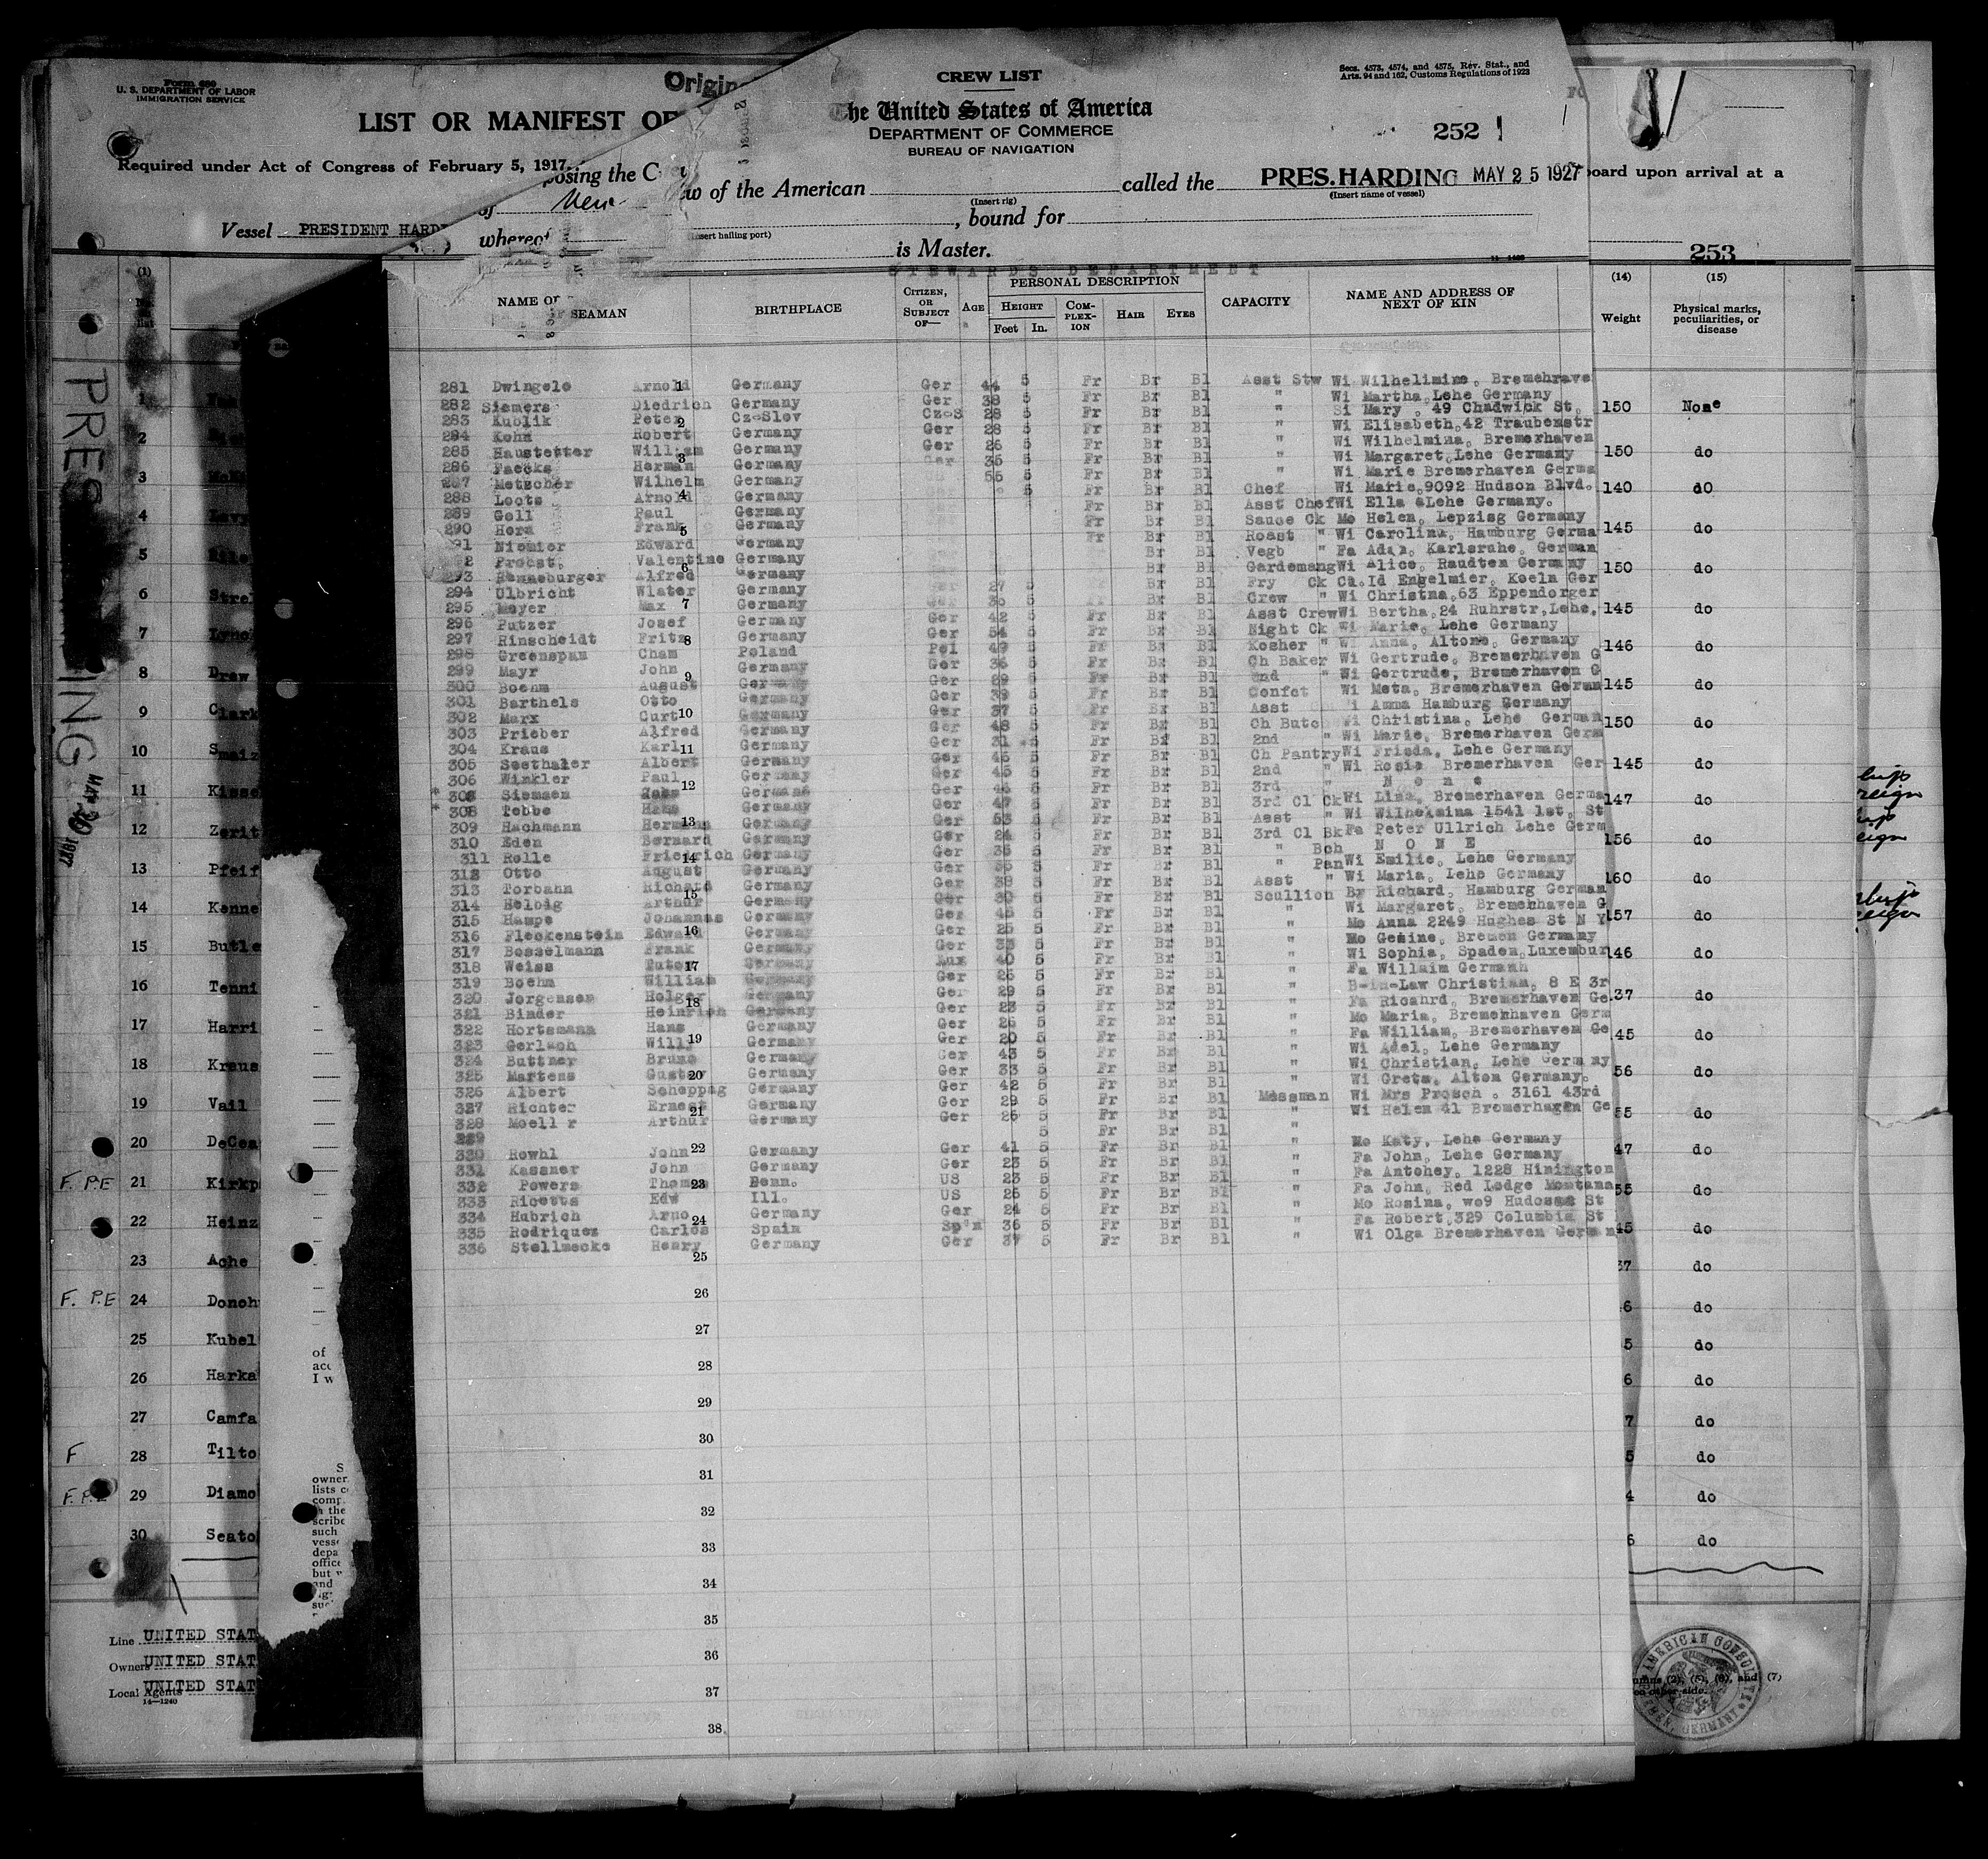 Form 680
U. S. DEPARTMENT OF LABOR
IMMIGRATION SERVICE
Origin
LIST OR MANIFEST OF
Required under Act of Congress of February 5, 1917
Vessel PRESIDENT HARD
CREW LIST
Secs. 4573, 4574, and 4575, Rev. Stat., and
Arts. 94 and 162, Customs Regulations of 1923
The United States of America
DEPARTMENT OF COMMERCE
BUREAU OF NAVIGATION
252
posing the C ew of the American called the PRES. HARDING MAY 25 1927
(Insert rig) (Insert name of vessel)
of New , bound for
(Insert hailing port)
whereof is Master.
board upon arrival at a
253
STEWARDS DEPARTMENT
NAME OF SEAMAN BIRTHPLACE CITIZEN, OR SUBJECT OF— AGE PERSONAL DESCRIPTION CAPACITY NAME AND ADDRESS OF NEXT OF KIN
HEIGHT Feet In. COMPLEXION HAIR EYES
(14) Weight (15) Physical marks, peculiarities, or disease
281 Dwingelo Arnold Germany Ger 44 5 Fr Br Bl Asst Stw Wi Wilhelimine, Bremehrave
282 Siemers Diedrich Germany Ger 38 5 Fr Br Bl " Wi Martha, Lehe Germany
283 Kublik Peter CzoSlov CzoS 28 5 Fr Br Bl " Si Mary , 49 Chadwick St.
284 Kohn Robert Germany Ger 28 5 Fr Br Bl " Wi Elisabeth, 42 Traubenstr
285 Haustetter William Germany Ger 26 5 Fr Br Bl " Wi Wilhelmina, Bremerhaven
286 Faecks Herman Germany Ger 35 5 Fr Br Bl " Wi Margaret, Lehe Germany
287 Metzcher Wilhelm Germany 55 5 Fr Br Bl " Wi Marie Bremerhaven Germa
288 Loots Arnold Germany 5 Fr Br Bl Chef Wi Marie, 9092 Hudson Blvd.
289 Goll Paul Germany Fr Br Bl Asst Chef Wi Ella Lehe Germany.
290 Hora Frank Germany Fr Br Bl Sauce Ck Mo Helen, Lepzisg Germany
291 Niemier Edward Germany Fr Br Bl Roast " Wi Carolina, Hamburg Germa
292 Probst, Valentine Germany Br Bl Vegb " Fa Adam, Karlsruhe, German
293 Renneburger Alfred Germany Br Bl Gardemang Wi Alice, Raudten Germany
294 Ulbricht Wlater Germany Ger 27 5 Br Bl Fry Ck Ca.Id Engelmier, Koeln Ger
295 Meyer Max Germany Ger 36 5 Br Bl Crew " Wi Christna, 63 Eppendorger
296 Putzer Josef Germany Ger 42 5 Fr Br Bl Asst Crew Wi Bertha, 24 Ruhrstr, Lehe,
297 Rinscheidt Fritz Germany Ger 54 5 Fr Br Bl Night Ck Wi Marie, Lehe Germany
298 Greenspan Cham Poland Pol 49 5 Fr Br Bl Kosher " Wi Anna, Altona, Germany
299 Mayr John Germany Ger 36 5 Fr Br Bl Ch Baker Wi Gertrude, Bremerhaven G
300 Boehm August Germany Ger 29 5 Fr Br Bl 2nd " Wi Gertrude, Bremerhaven G
301 Barthels Otto Germany Ger 39 5 Fr Br Bl Confct Wi Meta, Bremerhaven German
302 Marx Curt Germany Ger 37 5 Fr Br Bl Asst Anna Hamburg Germany
303 Prieber Alfred Germany Ger 48 5 Fr Br Bl Ch Butc Wi Christina, Lehe German
304 Kraus Karl Germany Ger 31 5 Fr Br Bl 2nd " Wi Marie, Bremerhaven Germ
305 Seethaler Albert Germany Ger 45 5 Fr Br Bl Ch Pantry Wi Frieda, Lehe Germany
306 Winkler Paul Germany Ger 45 5 Fr Br Bl 2nd " Wi Rosie Bremerhaven Ger
Siemsen Germany Ger 5 Fr Br Bl 3rd " N o n e
308 Tebbe Hans Germany Ger 47 5 Fr Br Bl 3rd Cl Ck Wi Lina, Bremerhaven Germa
309 Hachmann Hermann Germany Ger 53 5 Fr Br Bl Asst " Wi Wilhelmina 1541 1st, St
310 Eden Bernard Germany Ger 24 5 Fr Br Bl 3rd Cl Bk Fa Peter Ullrich Lehe Germ
311 Rolle Friedrich Germany Ger 35 5 Fr Br Bl " Bch N O N E
312 Otto August Germany Ger 5 Fr Br Bl " Pan Wi Emilie, Lehe Germany
313 Torbahn Richard Germany Ger 38 5 Fr Br Bl Asst " Wi Maria, Lehe Germany
314 Helbig Arthur Germany Ger 30 5 Fr Br Bl Scullion Br Richard, Hamburg German
315 Hampe Johannas Germany Ger 45 5 Fr Br Bl " Wi Margaret, Bremerhaven G
316 Fleckenstein Edward Germany Ger 25 5 Fr Br Bl " Mo Anna 2249 Hughes St N Y
317 Bosselmann Frank Germany Ger 33 5 Fr Br Bl " Mo Gesine, Bremen Germany
318 Weiss Germany Lux 40 5 Fr Br Bl " Wi Sophia, Spaden, Luxembur
319 Boehm William Germany Ger 26 5 Fr Br Bl " Fa Willaim Germanh
320 Jorgensen Holger Germany Ger 29 5 Fr Br Bl " B-in-Law Christian, 8 E 3r
321 Binder Heinrich Germany Ger 23 5 Fr Br Bl " Fa Ricahrd, Bremerhaven Ge
322 Hortsmann Hans Germany Ger 26 5 Fr Br Bl " Mo Maria, Bremerhaven Germ
323 Gerlach Willy Germany Ger 20 5 Fr Br Bl " Fa William, Bremerhaven Ge
324 Buttner Bruno Germany Ger 43 5 Fr Br Bl " Wi Adel, Lehe Germany
325 Martens Gustav Germany Ger 33 5 Fr Br Bl " Wi Christian, Lehe Germany
326 Albert Scheppag Germany Ger 42 5 Fr Br Bl " Wi Greta, Alton Germany.
327 Richter Ernest Germany Ger 29 5 Fr Br Bl Messman Wi Mrs Prosch . 3161 43rd
328 Moell r Arthur Germany Ger 26 5 Fr Br Bl " Wi Helen 41 Bremerhagen Ge
329 5 Fr Br Bl "
330 Rowhl John Germany Ger 41 5 Fr Br Bl " Mo Katy, Lehe Germany
331 Kassner John Germany Ger 23 5 Fr Br Bl " Fa John, Lehe Germany
332 Powers Thomas Penn. US 23 5 Fr Br Bl " Fa Antohey, 1228 Hinington
333 Ricetts Edw Ill. US 25 5 Fr Br Bl " Fa John, Red Lodge Montana
334 Hubrich Arno Germany Ger 24 5 Fr Br Bl " Mo Rosina, wo9 Hudosn St
335 Rodriquez Carlos Spain Sp'n 36 5 Fr Br Bl " Fa Robert, 329 Columbia St
336 Stellmecke Henry Germany Ger 37 5 Fr Br Bl " Wi Olga Bremerhaven German
1
2
3
4
5
6
7
8
9
10
11
12
13
14
15
16
17
18
19
20
21
22
23
24
25
26
27
28
29
30
31
32
33
34
35
36
37
38
PRES ING
MAY 20 1927
(1)
1
2
3
4
5
6 Stre
7 Lync
8 Draw
9 Clark
10 Smaiz
11 Kisse
12 Zerit
13 Pfeif
14 Kenne
15 Butle
16 Tenni
17 Harri
18 Kraus
19 Vail
20 DeCea
F. P.E 21 Kirkp
22 Heinz
23 Ache
F. P.E 24 Donoh
25 Kubel
26 Harka
27 Camfa
F 28 Tilto
F. P.E 29 Diamo
30 Seato
150 None
150 do
140 do
145 do
150 do
145 do
146 do
145 do
150 do
145 do
147 do
156 do
160 do
157 do
146 do
137 do
45 do
56 do
55 do
47 do
55 do
45 do
37 do
6 do
5 do
6 do
7 do
5 do
4 do
6 do
of
acc
I w
S
owner
lists c
comp
in the
scribe
such
vess
depa
office
but
and
Line UNITED STAT
Owners UNITED STAT
Local Agents UNITED STAT
14—1240
umns (2), (5), (6), and (7)
on other side.
AMERICAN CONSULATE
BREMEN, GERMANY